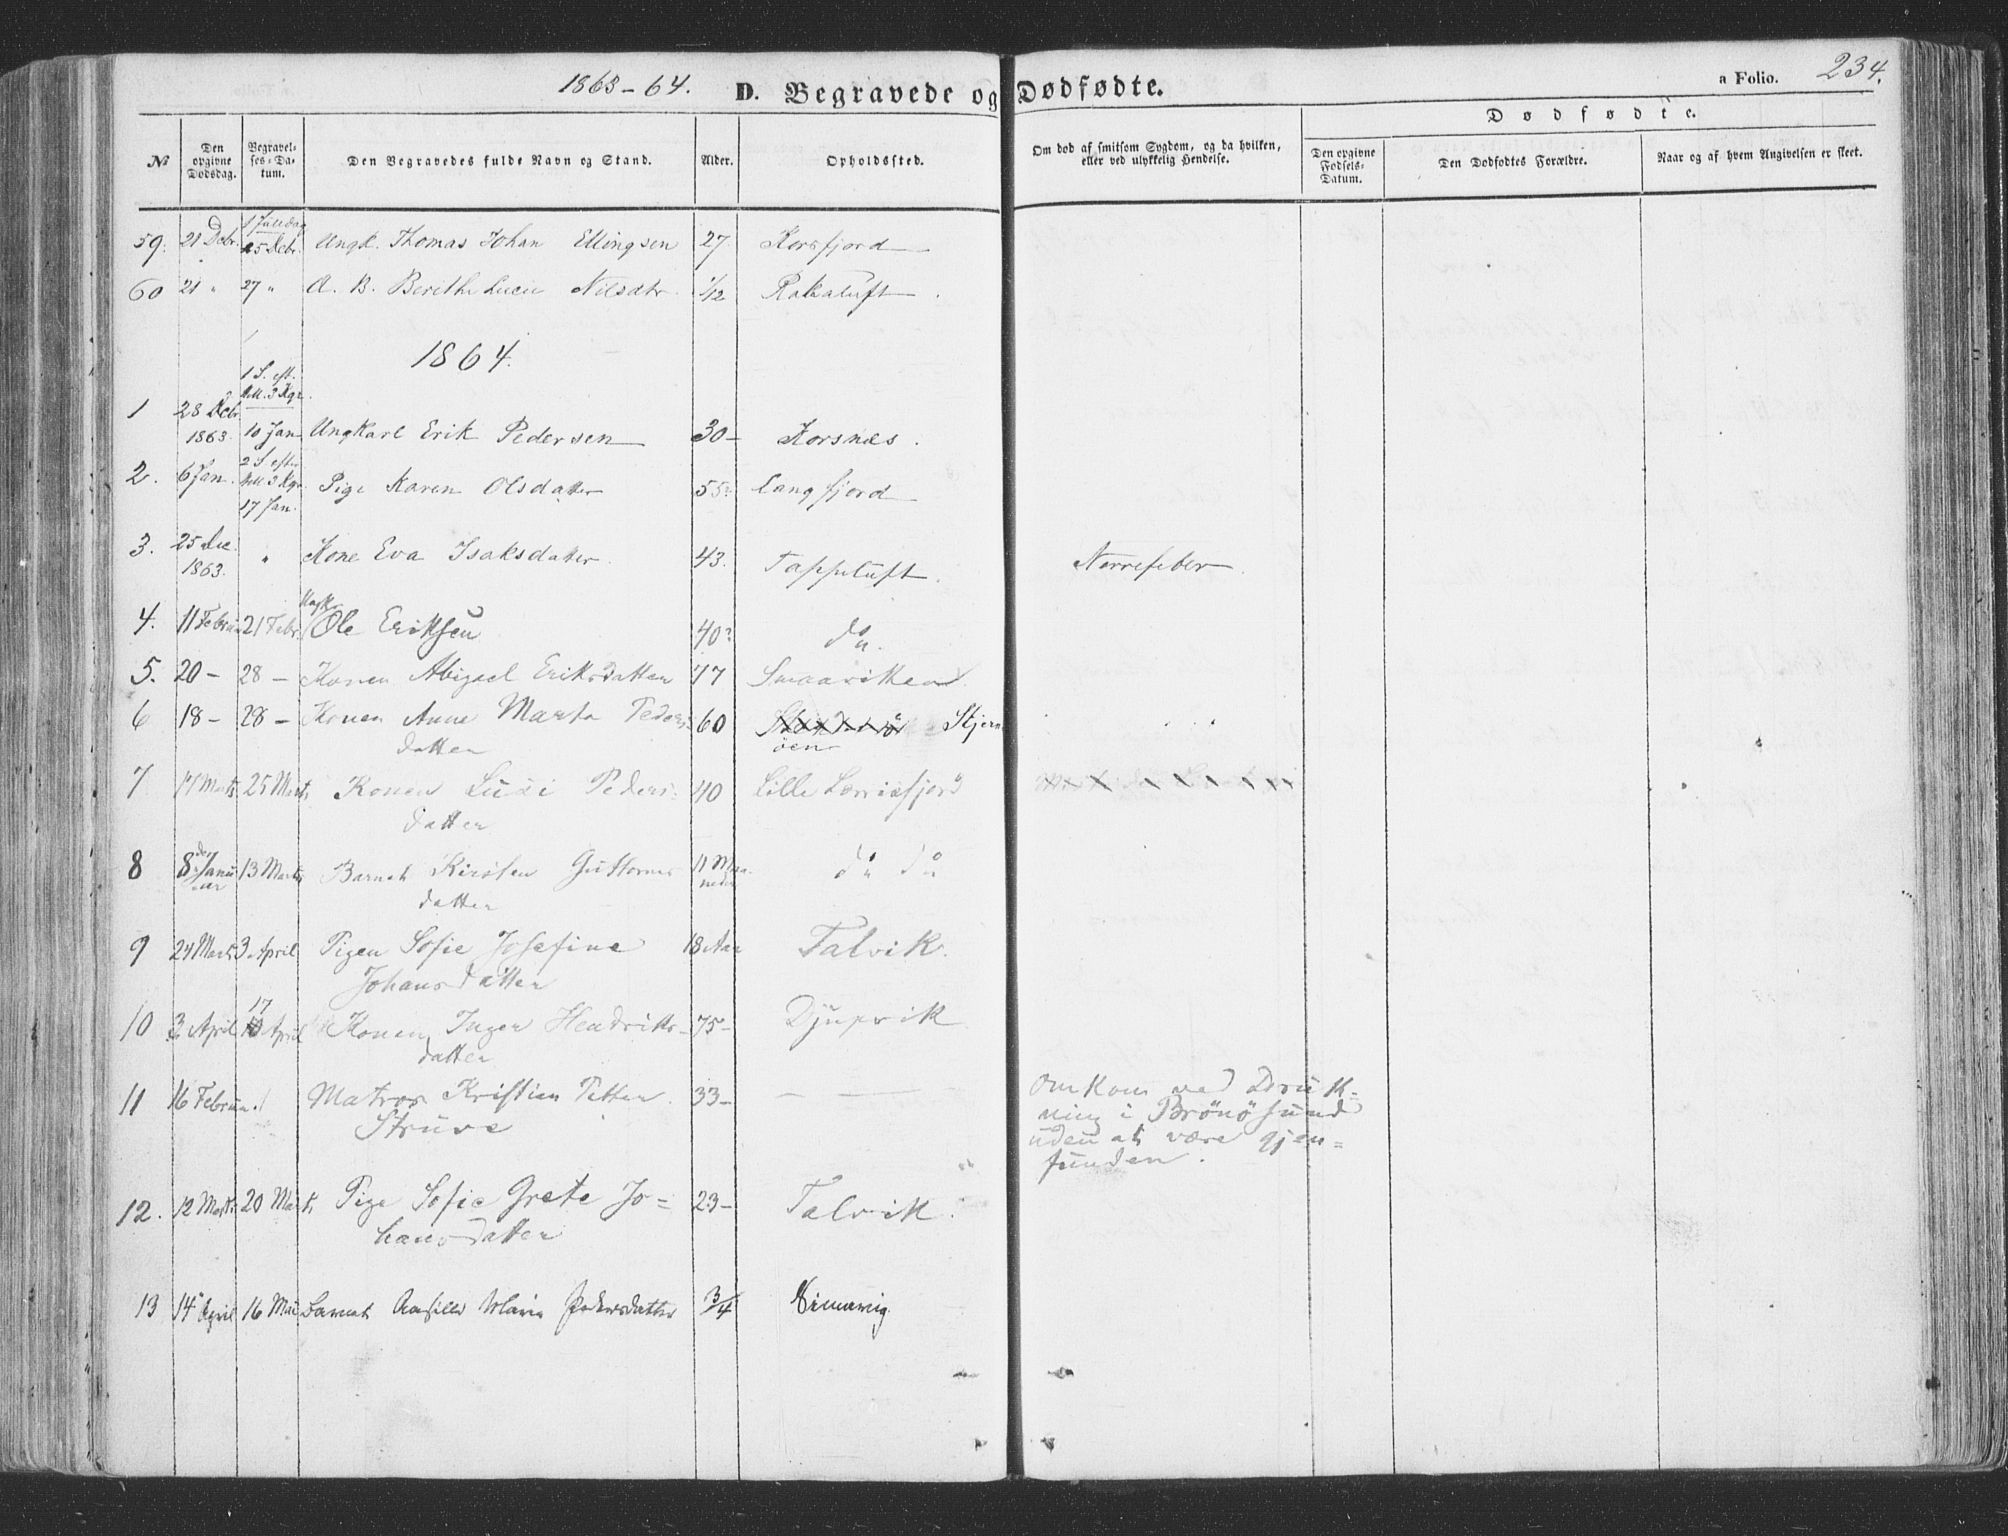 1863-64. D. Begravede og Dødfødte. a Folio. 234.
Dødfødte.
No Den opgivne Dødsdag. Begravelses-Datum. Den Begravedes fulde Navn og Stand. Alder. Opholdssted. Om død af smitsom Sygdom, og da hvilken, eller ved ulykkelig Hendelse. Den opgivne Fødsels-Datum. Den Dødfødtes Forældre. Naar og af hvem Angivelsen er skeet.
1 Juledag
59. 21 Debr. 25 Debr. Ungk. Thomas Johan Ellingsen 27. Korsfjord
60 21 " 27 " A. B. Berithe Lucie Nilsdtr. 1/12 Rakaluft.
1864.
1 S. eft. Hell. 3 Kgr.
1 28 Debr 1863. 10 Jan Ungkarl Erik Pedersen 30- Korsnæs.
2 S. efter Hell. 3 Kgr.
2. 6 Jan. 17 Jan. Pige Karen Olsdatter 55? Langfjord
3. 25 Dec. 1863. " Kone Eva Isaksdatter. 43. Tappeluft. Nervefeber.
4. 11 Februar 21 Febr. Ungk. Ole Eriksen 40? do.
5. 20 - 28 - Konen Abigael Eriksdatter 77 Smaaviken
6 18 - 28 - Konen Anne Marta Peders- 60 Stjern
datter øen
7 17 Marts 25 Marts Konen Lusi Peders- 40 Lille Lerrisfjord
datter
8 8de Januar 13 Marts Barnet Kirsten Guttorms 11 Maaneder do do
datter
9 24 Marts 3 April Pigen Sofie Josefine 18 Aar Talvik.
Johansdatter
10 3 April 17 April Konen Inger Hendriks- 75- Djupvik
datter
11 16 Februar Matros Kristian Petter 33- — — Omkom ved Druk-
Struve ning i Brönösund
uden at være gjen-
funden.
12. 12 Marts 20 Marts Pige Sofie Grete Jo- 23- Talvik.
hansdatter
13 14 April 16 Mai Barnet Marie Pedersdatter 3/4